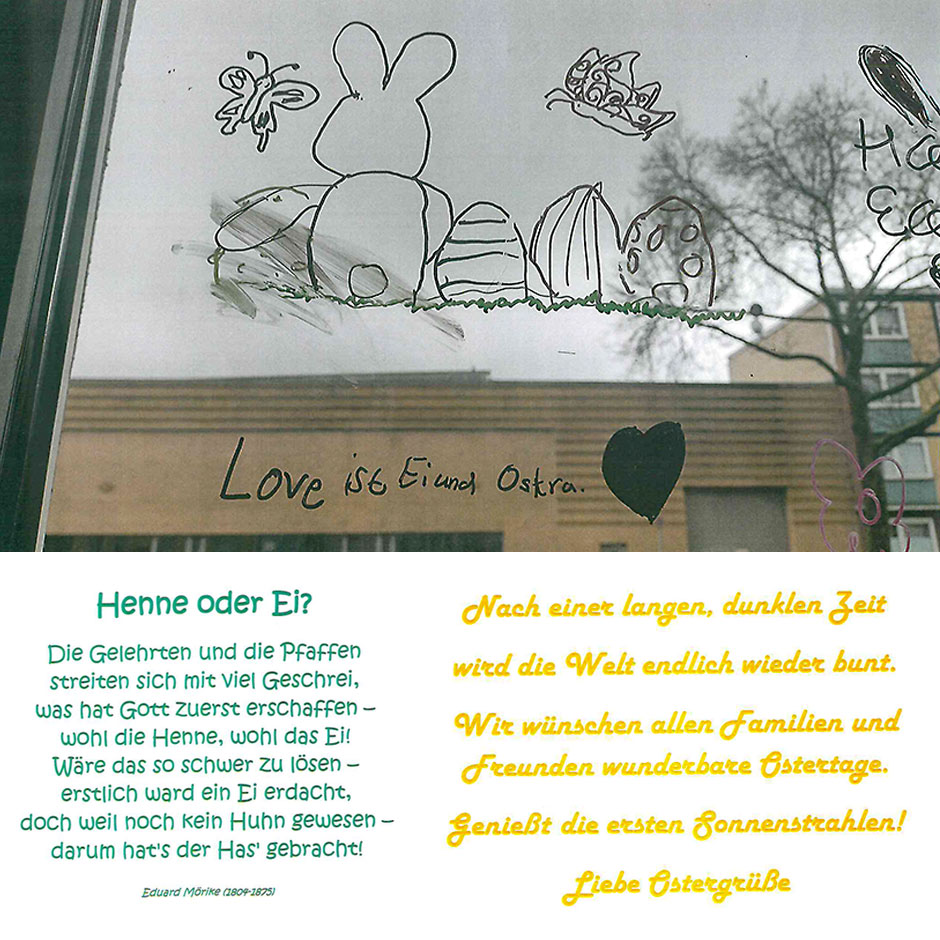 Love ist Ei und Ostra.
Henne oder Ei?
Die Gelehrten und die Pfaffen
streiten sich mit viel Geschrei,
was hat Gott zuerst erschaffen –
wohl die Henne, wohl das Ei!
Wäre das so schwer zu lösen –
erstlich ward ein Ei erdacht,
doch weil noch kein Huhn gewesen –
darum hat's der Has' gebracht!
Eduard Mörike (1804-1875)
Nach einer langen, dunklen Zeit
wird die Welt endlich wieder bunt.
Wir wünschen allen Familien und
Freunden wunderbare Ostertage.
Genießt die ersten Sonnenstrahlen!
Liebe Ostergrüße